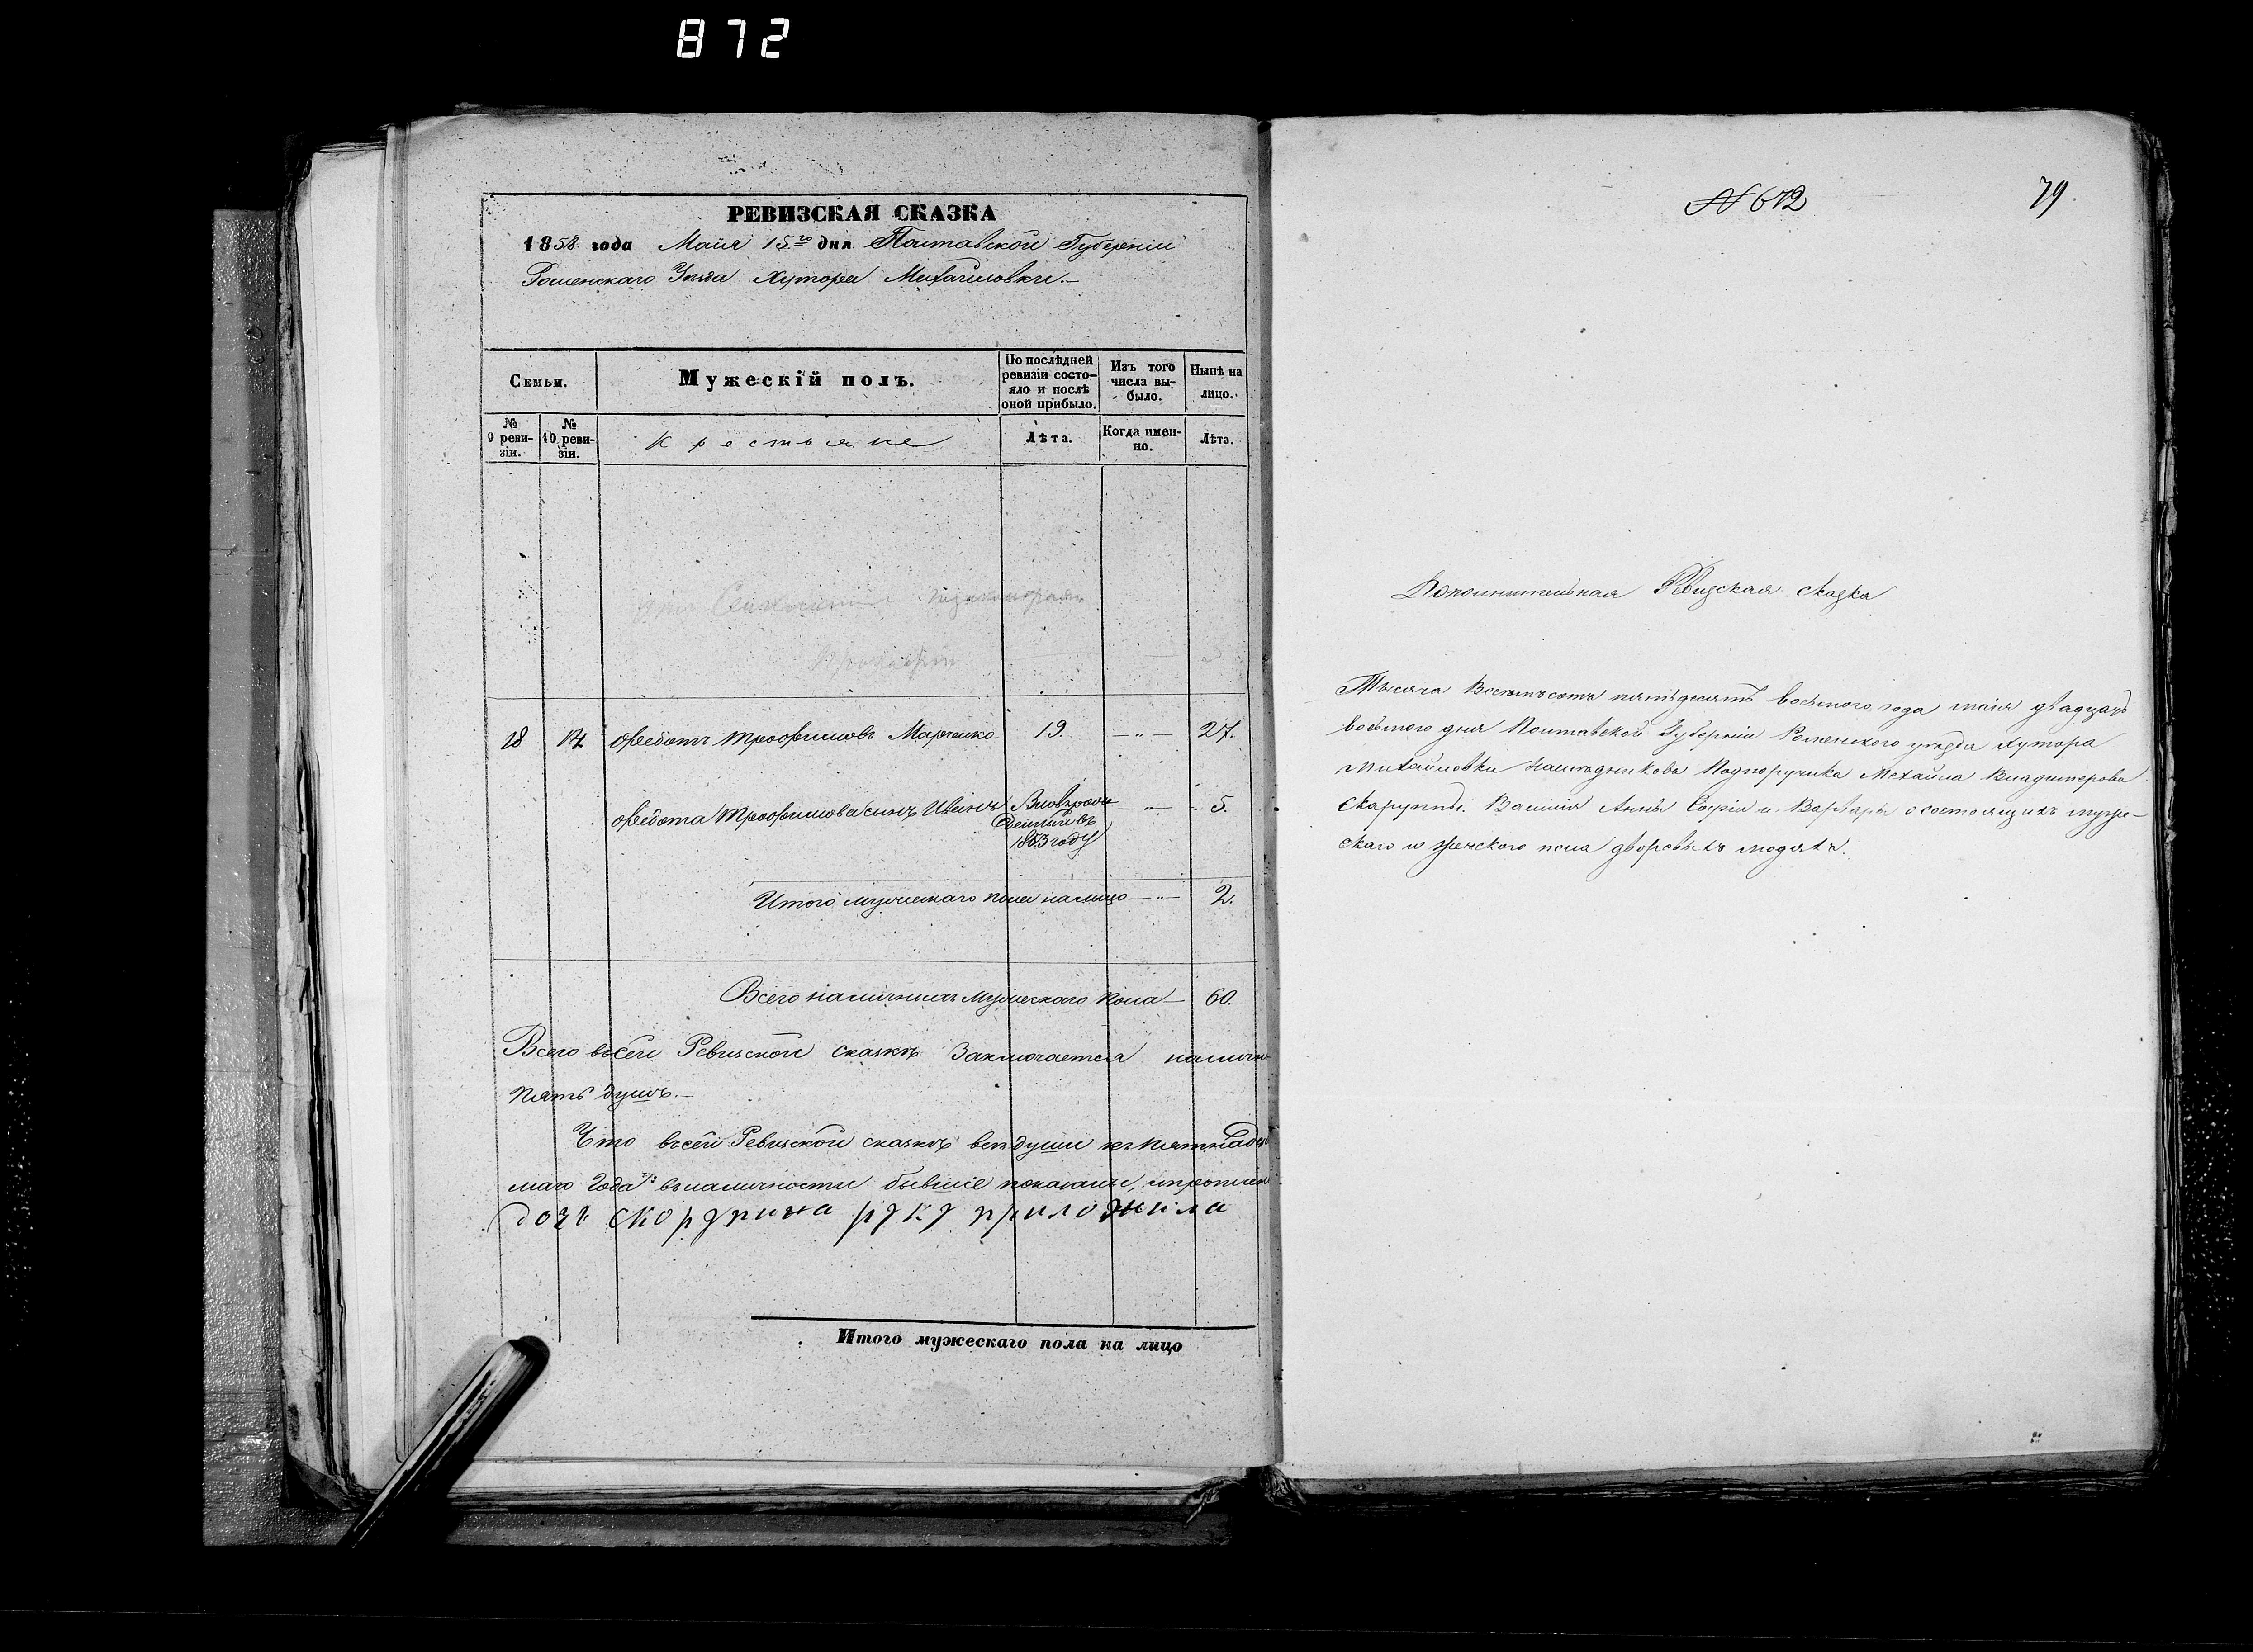 872
РЕВИЗСКАЯ СКАЗКА
1858 года Маія 15го дня Полтавской Губерніи
Роменскаго Уезда Хутора Михайловки.—
Семьи.
Мужескій полъ.
По послѣдней ревизіи состо-
яло и послѣ
оной прибыло.
Изъ того
числа вы-
было.
Нынѣ на
лицо.
№
9 реви-
зіи.
№
10 реви-
зіи.
Крестьяне
Лѣта.
Когда имен-
но.
Лѣта.
18 14 Федотъ Трофимовъ Марченко 19. —"— 27.
Федота Трофимова сынъ Иванъ
Вновьрож
денный въ
1853 году
—"— 5.
Итого мужескаго пола налицо —"— 2.
Всего наличныхъ мужескаго пола — 60.
Всего въсей Ревизской сказкѣ Заключается
пять душъ.—
Что въсей Ревизской сказкѣ всѣ души къ
маго Года въналичности бывшіе показаны,
дочь скорупина руку приложила
Итого мужескаго пола на лицо
N 672
79.
Дополнительная Ревизская сказка
Тысяча Восемьсотъ пятьдесятъ восьмого года маія двадцать
восьмого дня Полтавской Губерніи Роменского уѣзда Хутора
Михайловки наслѣдниковъ Подпоручика Михайла Владимерова
Скарупы: Василія Анны Софіи и Варвары о состоящихъ муже-
скаго и женского пола дворовыхъ людяхъ.